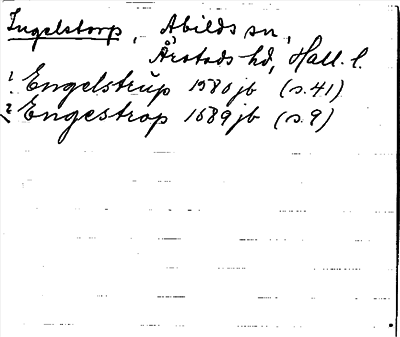 Ingelstorp, Abilds sn,
Årstads hd, Hall. l.
! Engelstrup 1580 jb (s. 41)
? Engestrop 1689 jb (s. 9)